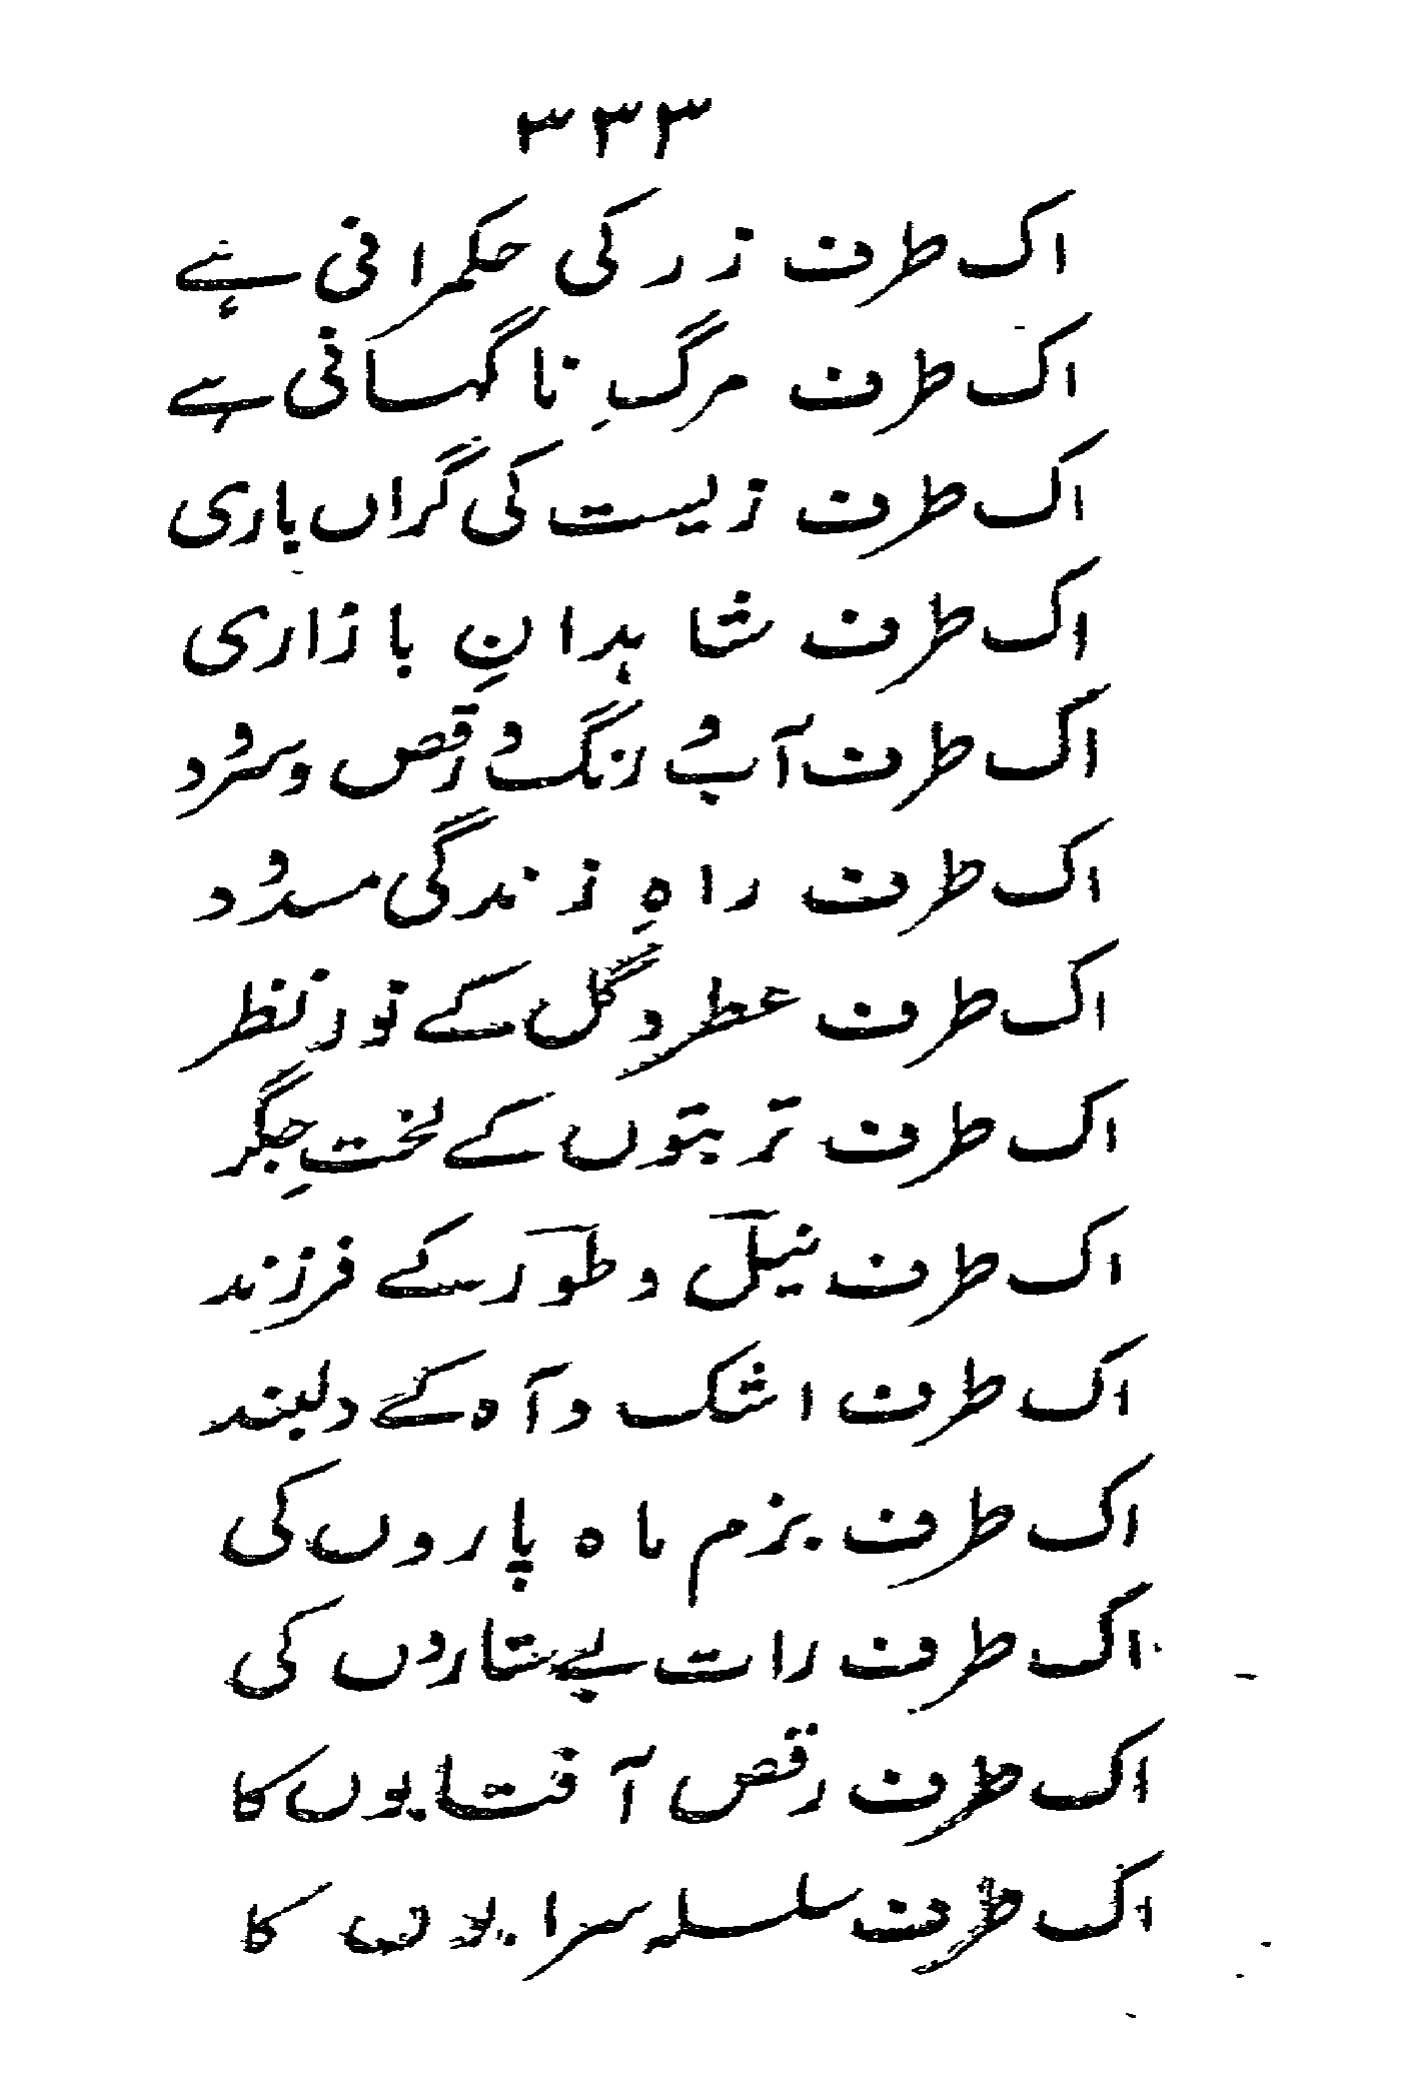 ۳۳۳
اک طرف زر کی حکمرانی ہے
اک طرف مرگِ ناگہانی ہے
اک طرف زیست کی گراں باری
اک طرف شاہدانِ بازاری
اک طرف آب و رنگ و رقص و سرود
اک طرف راہِ زندگی مسدود
اک طرف عطر و گل کے نورِ نظر
اک طرف تربتوں کے لختِ جگر
اک طرف نیل و طور کے فرزند
اک طرف اشک و آہ کے دلبند
اک طرف بزم ماہ پاروں کی
اک طرف رات بے ستاروں کی
اک طرف رقص آفتابوں کا
اک طرف سلسلہ سرابوں کا